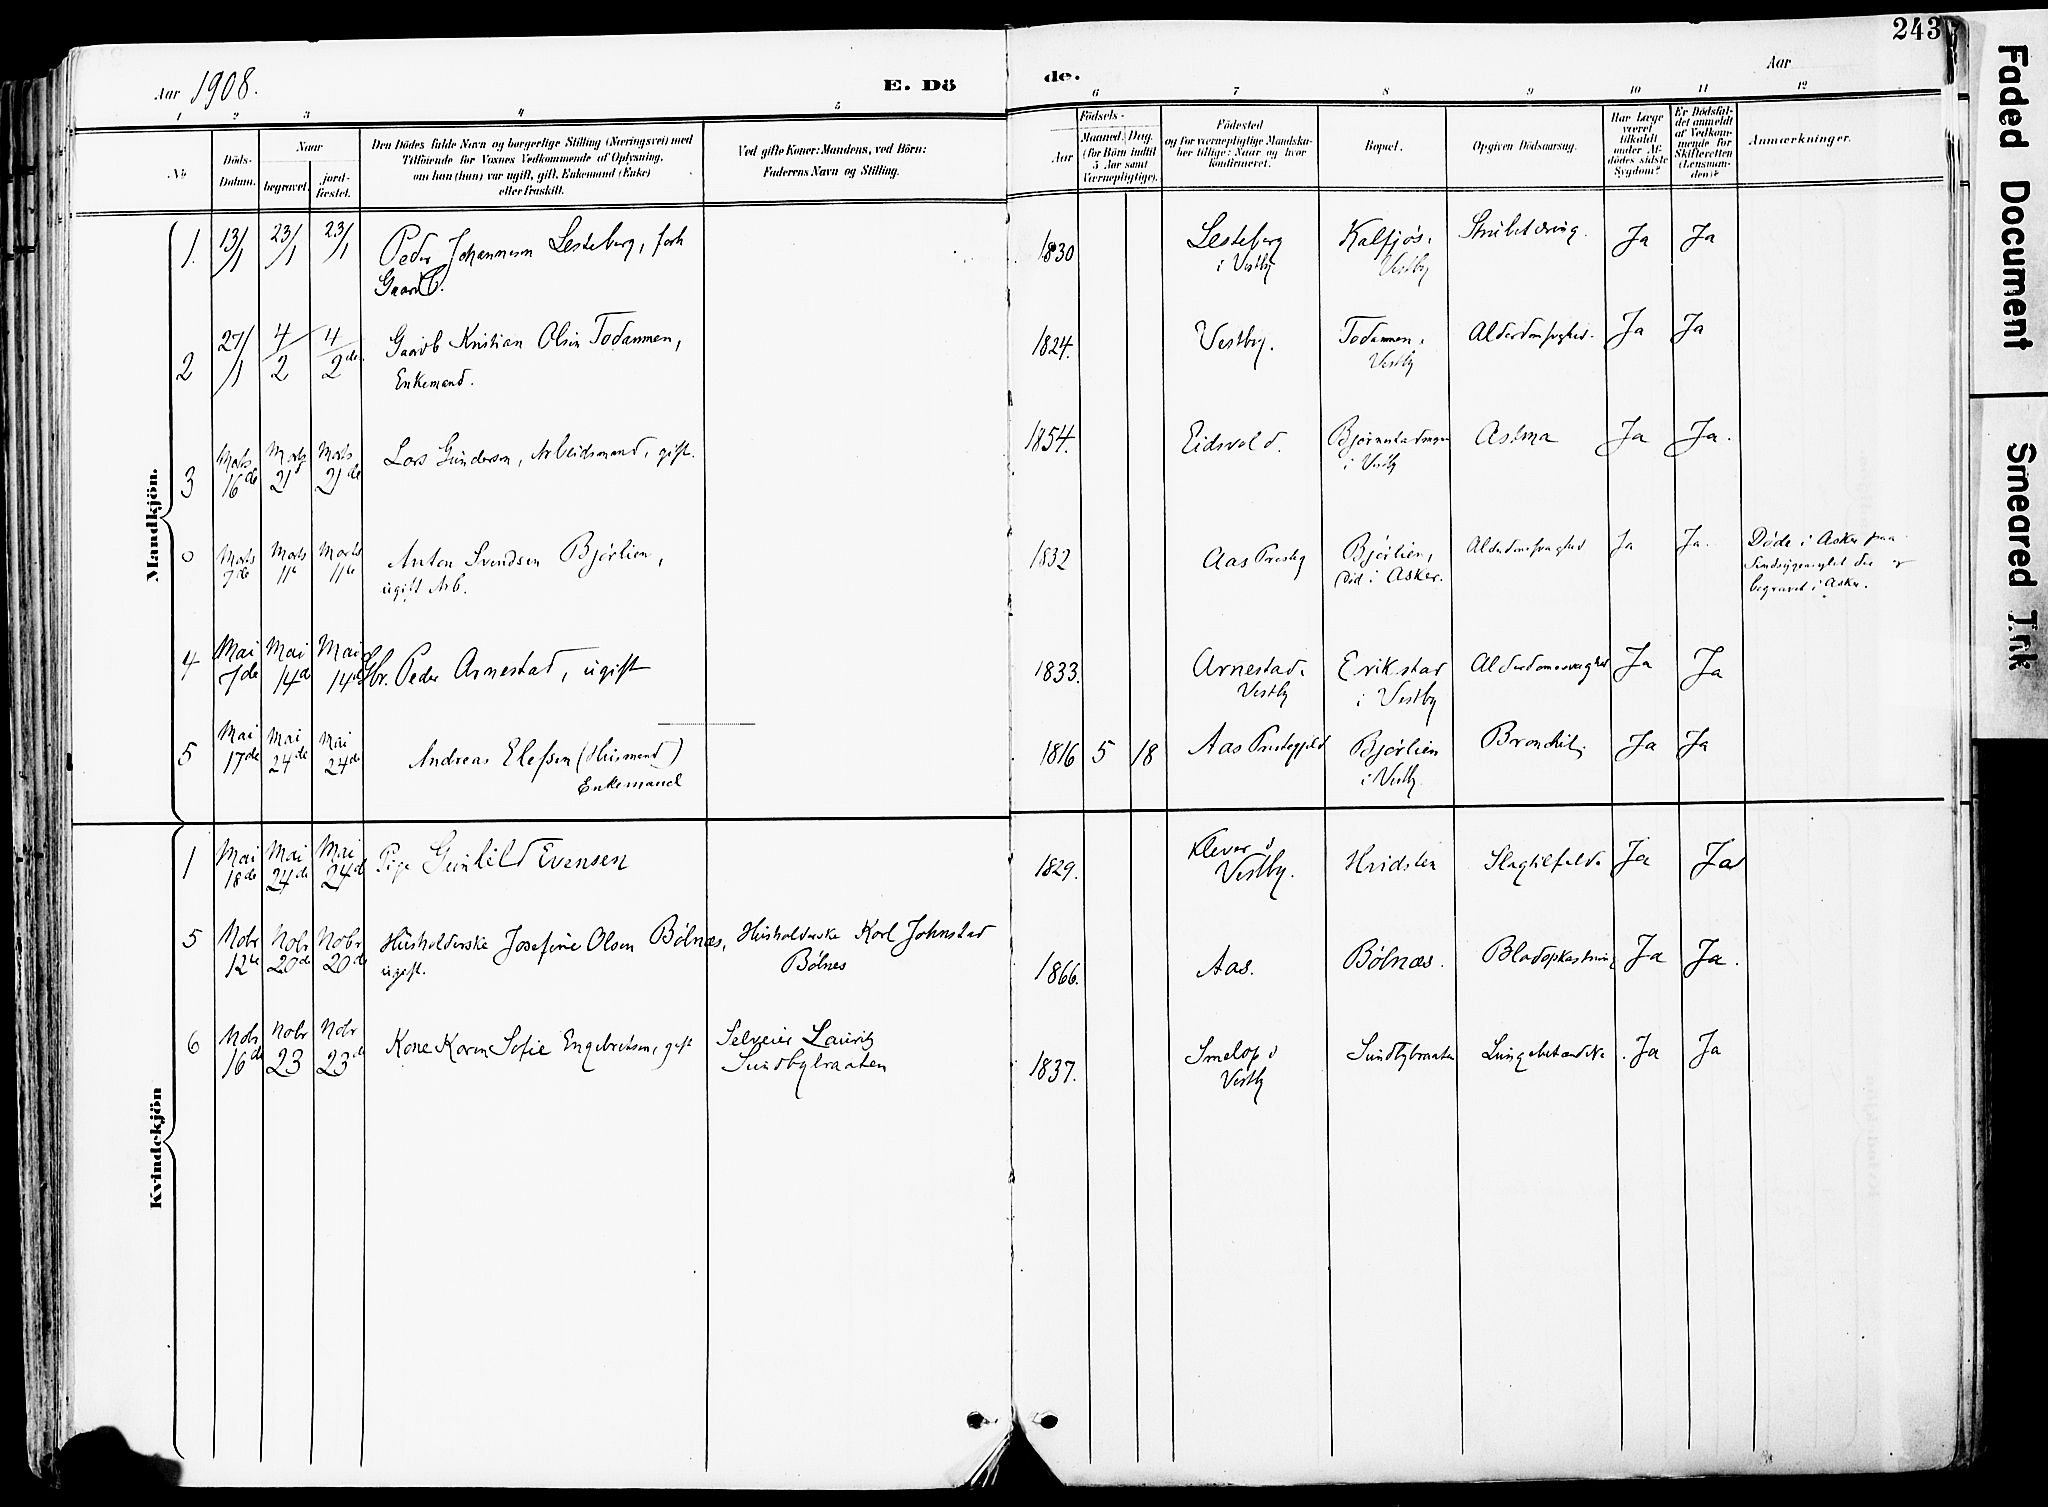 243
Aar 1908.
E. Dö
de.
Aar
1 2 3 4 5 6 7 8 9 10 11 12
No
Döds-
Datum.
Naar
begravet.
jord-
fæstet.
Den Dödes fulde Navn og borgerlige Stilling (Næringsvei) med
Tilföiende for Voxnes Vedkommende af Oplysning,
om han (hun) var ugift, gift, Enkemand (Enke)
eller fraskilt.
Ved gifte Koner: Mandens, ved Börn:
Faderens Navn og Stilling.
Födsels-
Aar
Maaned. Dag.
(for Börn indtil
5 Aar samt
Værnepligtige).
Födested
og for værnepligtige Mandska-
ber tillige: Naar og hvor
konfirmeret.
Bopæl.
Opgiven Dödsaarsag.
Har Læge
været
tilkaldt
under Af-
dödes sidste
Sygdom?
Er Dödsfal-
det anmeldt
af Vedkom-
mende for
Skifteretten
(Lensman-
den)?
Anmærkninger.
Mandkjön.
1. 13/1 23/1 23/1 Peder Johannesen Lesteberg, forh 1830 Lesteberg Kalsjøs. Strubetæring. Ja Ja
Gaardb. i Vestby Vestby
2 27/1 4/2 4/2de. Gaardb Kristian Olsen Todammen, 1824. Vestby. Todammen, Alderdomsvaghed. Ja Ja
Enkemand. Vestby
3 Marts 16de Marts 21d Marts 21de Lars Gundersen, Arbeidsmand, gift. 1854. Eidsvold. Astma Ja Ja.
i Vestby
0 Marts 7de Marts 11te Marts 11te Anton Svendsen Bjørlien, 1832 Aas Prestg Bjørlien, Alderdomsvaghed Ja Ja. Døde i Asker paa
ugift Arb. Død i Asker. Sindsygeasylet der og
begravet i Asker.
4 Mai 7de Mai 14de Mai 14de Gbr. Peder Arnestad, ugift 1833. Arnestad. Erikstad Alderdomssvaghed Ja Ja
Vestby i Vestby
5 Mai 17de Mai 24de Mai 24de Andreas Elefsen (Husmand) 1816 5 18 Aas Prestegjeld Bjørlien Bronchit. Ja Ja
Enkemand i Vestby
Kvindekjön
1 Mai 18de Mai 24de Mai 24de Pige Gunhild Evensen 1829. Klever i Hvidsten Slagtilfælde Ja Ja
Vestby.
5 Nobr 12te Nobr 20de Nobr 20de Husholderske Josefine Olsen Bölnæs, Husholderske Karl Johnstad 1866. Aas. Bölnæs. Blodopkastning Ja Ja.
ugift. Bölnes
6 Nobr 16de Nobr 23 Nobr 23de Kone Karen Sofie Engebretsen, gift Selveier Lauritz 1837. Smelop i Sundbybraaten Lungebetændelse. Ja Ja
Sundbybraaten Vestby
Faded Document
Smeared Ink